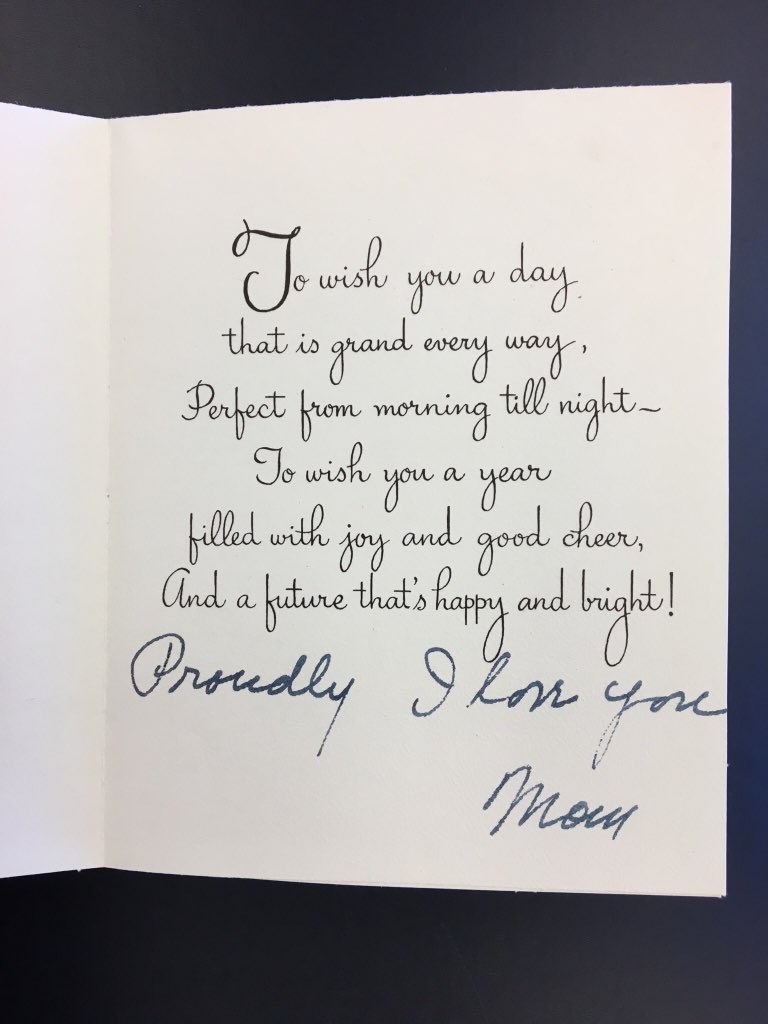 To wish you a day
that is grand every way,
Perfect from morning till night~
To wish you a year
filled with joy and good cheer,
And a future that's happy and bright!
Proudly I love you
Mom